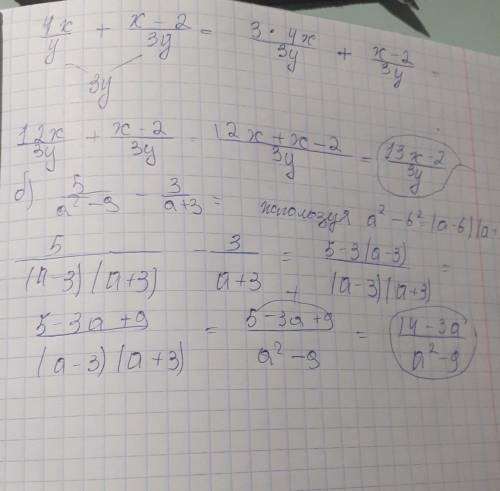 4x/y + (x - 2)/3y = 3 · 4x/3y + (x - 2)/3y =
3y
12x/3y + (x - 2)/3y = (12x + x - 2)/3y = (13x - 2)/3y
б) 5/(a² - 9) - 3/(a + 3) = используя a² - b² = (a - b)(a+
5/((a - 3)(a + 3)) - 3/(a + 3) = (5 - 3(a - 3))/((a - 3)(a + 3)) =
(5 - 3a + 9)/((a - 3)(a + 3)) = (5 - 3a + 9)/(a² - 9) = (14 - 3a)/(a² - 9)